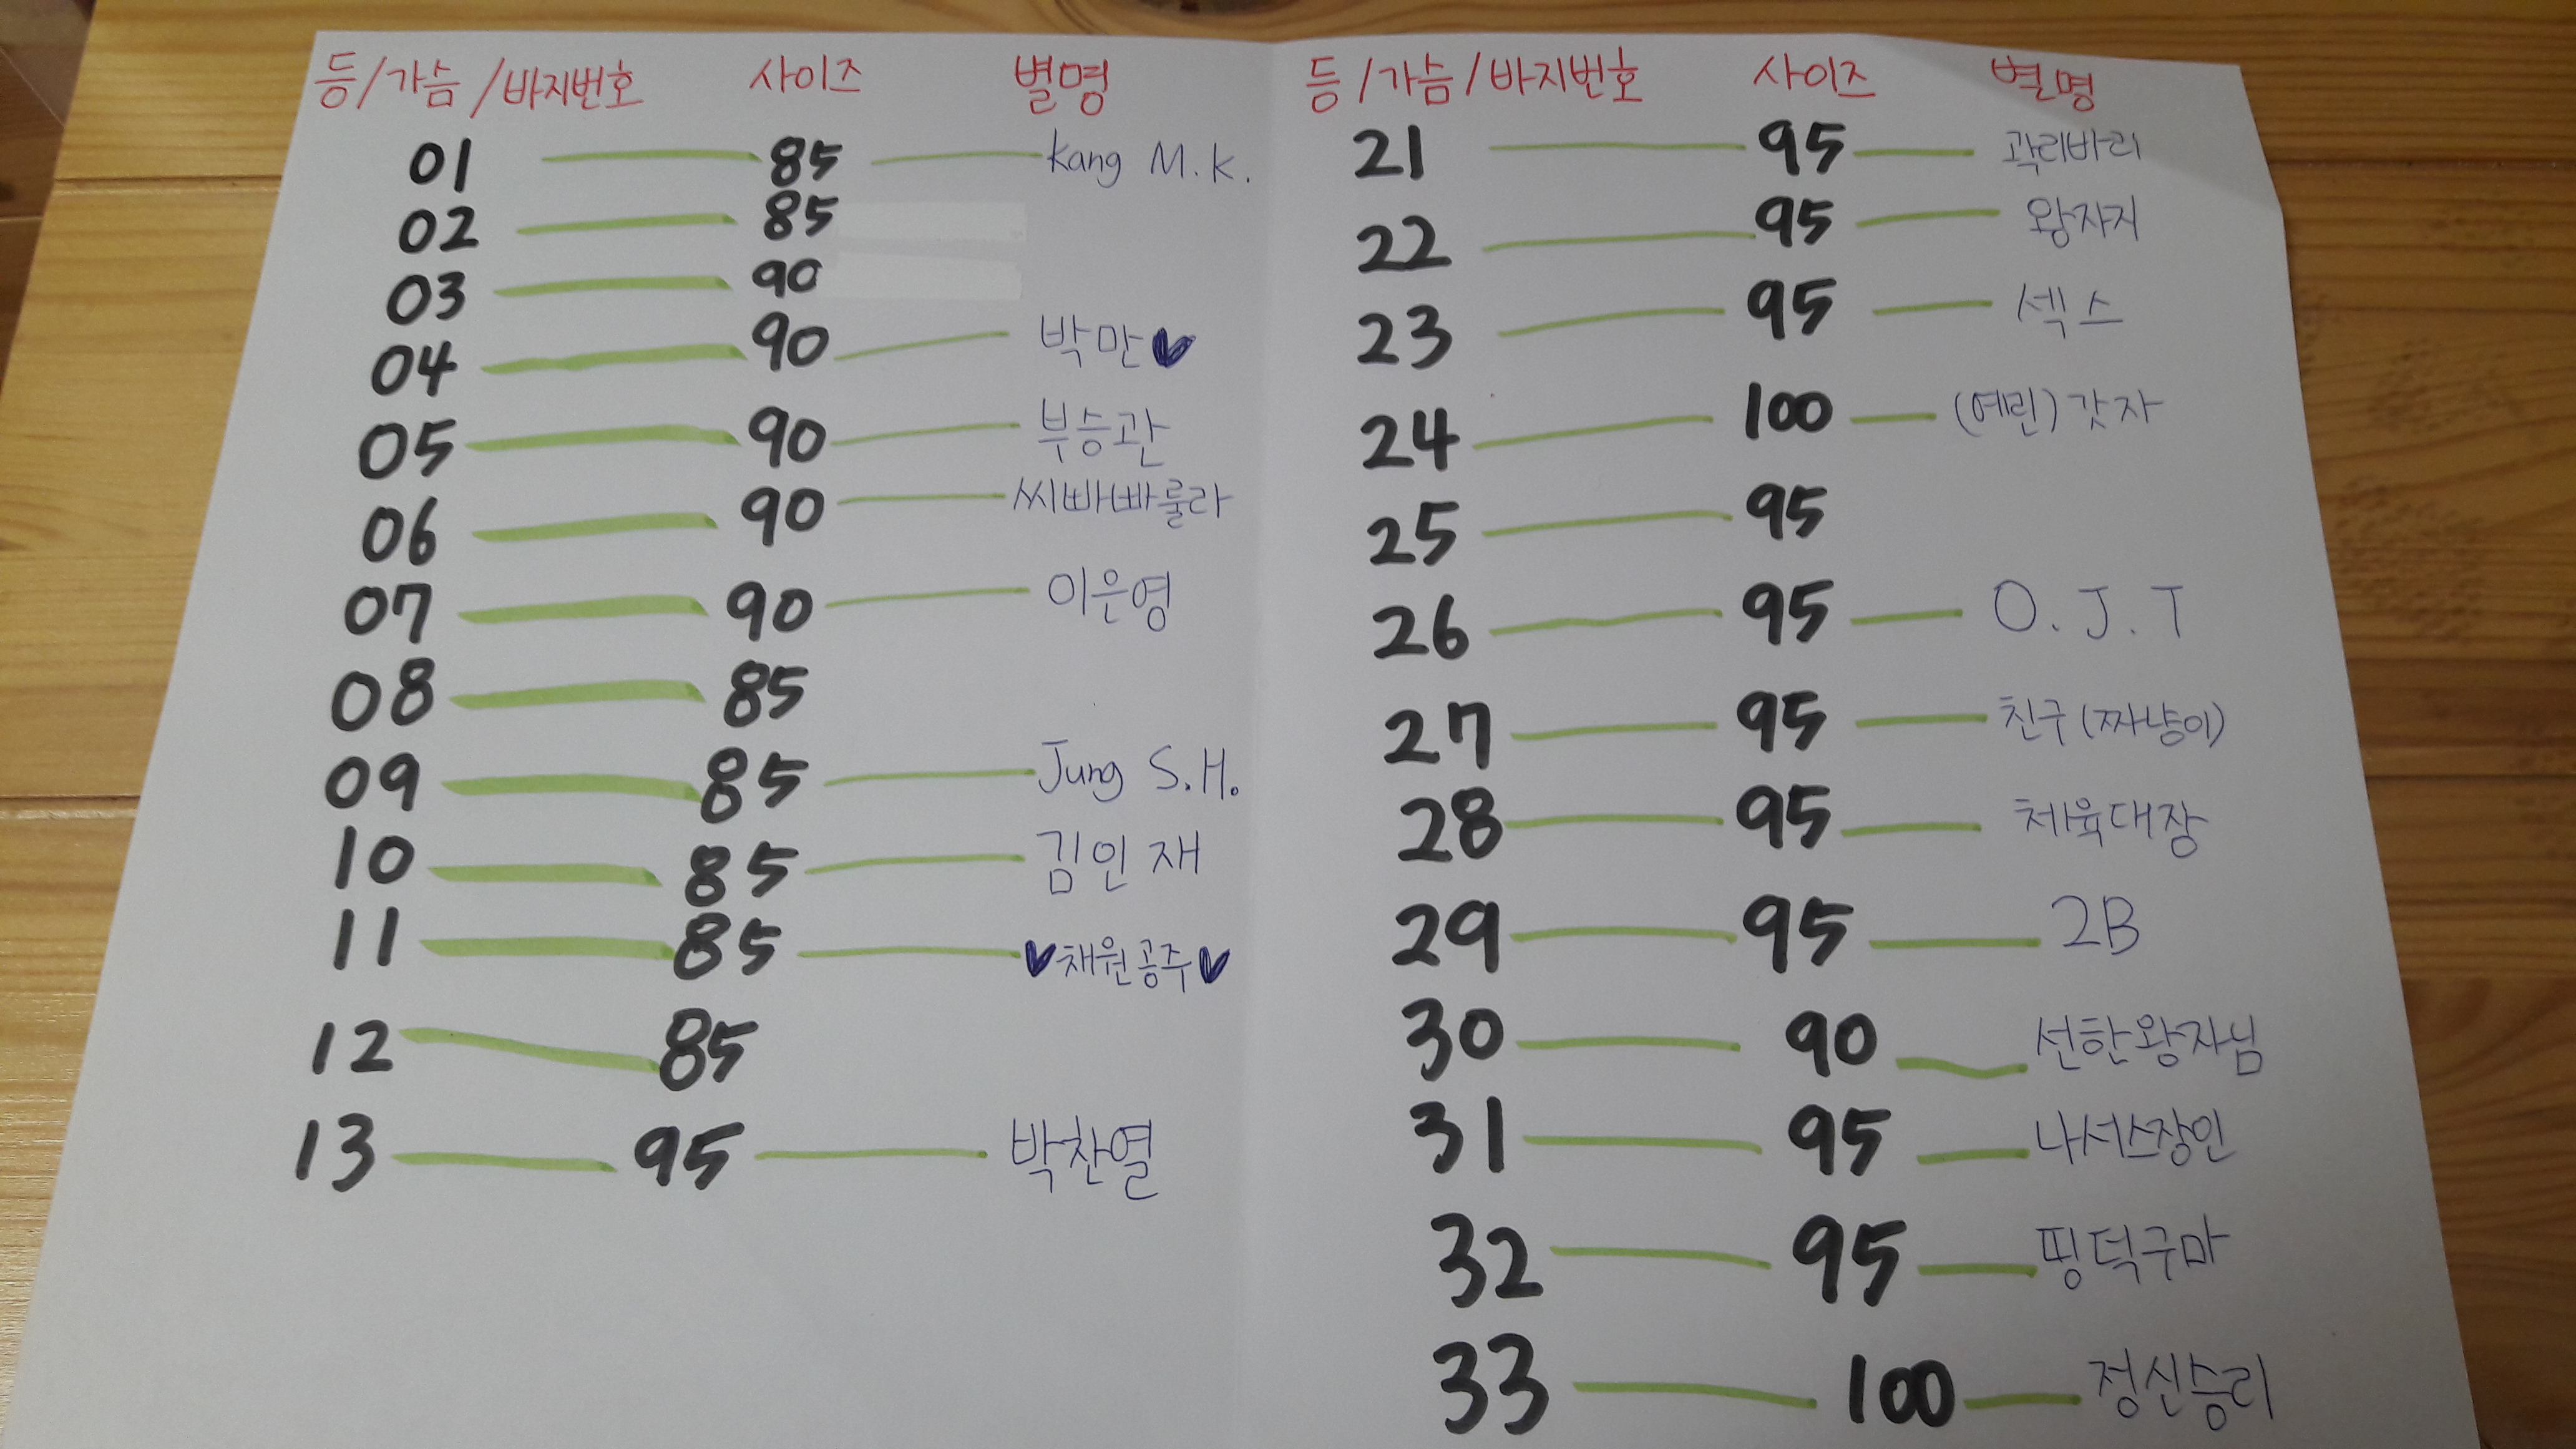 등/가슴/바지번호 사이즈 별명
01 85 Kang M.K.
02 85
03 90
04 90 박만♥
05 90 부승관
06 90 씨빠빠룰라
07 90 이은영
08 85
09 85 Jung S.H.
10 85 김인재
11 85 ♥채원공주♥
12 85
13 95 박찬열
등/가슴/바지번호 사이즈 별명
21 95 곽리바리
22 95 왕자지
23 95 섹스
24 100 (예린)갓자
25 95
26 95 O.J.T
27 95 친구(짜냥이)
28 95 체육대장
29 95 2B
30 90 선한왕자님
31 95 나서스장인
32 95 핑덕구마
33 100 정신승리